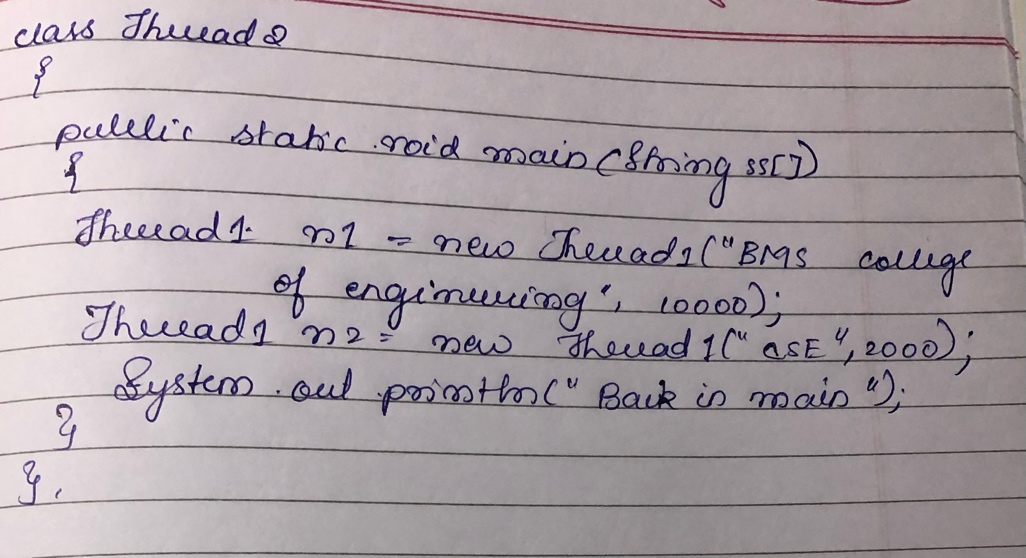 class Thread2
{
public static void main(String ss[])
{
Thread1 n1 = new Thread1("BMS college
of engineering", 10000);
Thread1 n2 = new Thread1("CSE", 2000);
System.out.println("Back in main");
}
}.